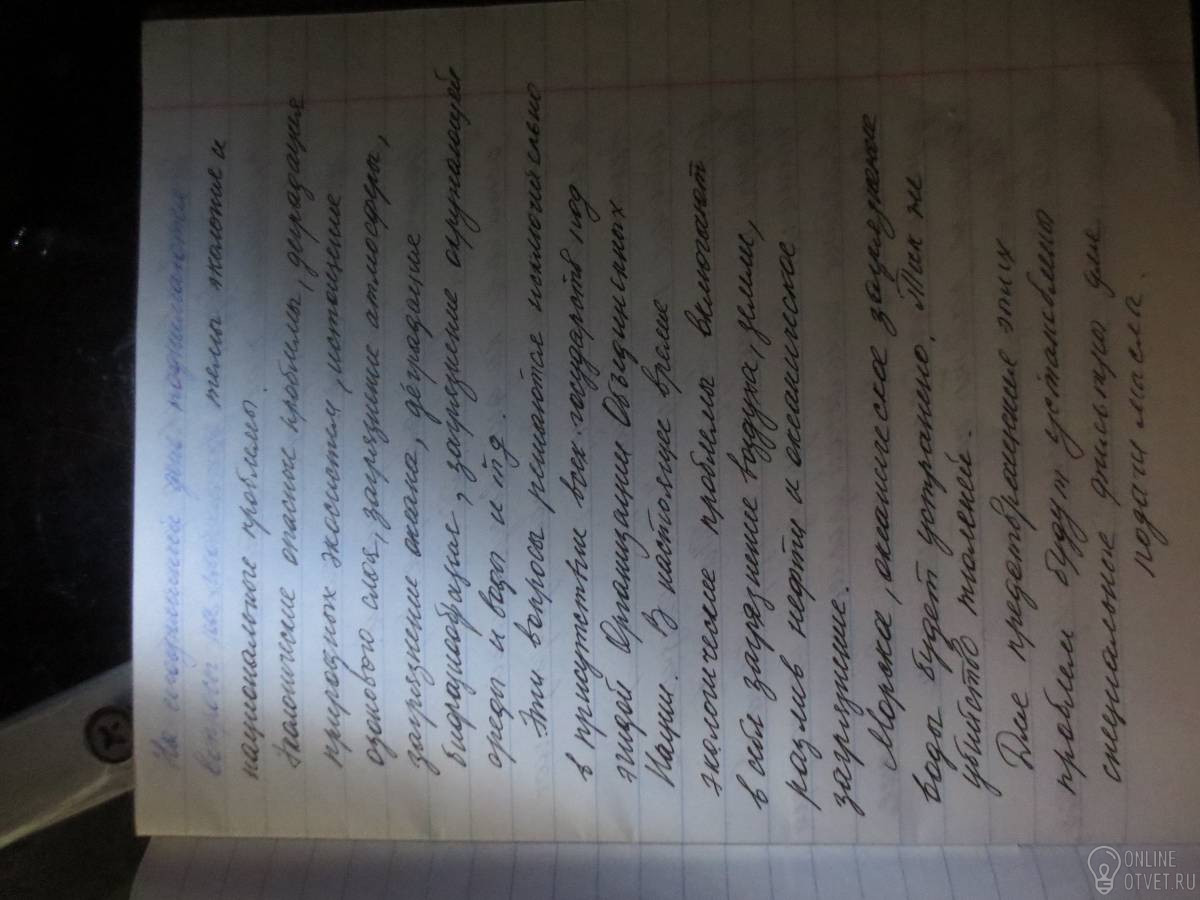 На сегодняшний день поднимаются
темы экологие и
национальные проблемы.
Экологические опасные проблемы, деградация
природных экосистем, истощение
озонового слоя, загрязнение атмосферы,
загрязнение океана, деградацие
биоразнообразие, загрязнение окружающей
среды и воды и т д.
Эти вопросы решаются исключительно
в присутствие всех государств под
эгидой Организации Объединенных
Нации. В настоящее время
экологические проблемы включают
в себя загрязнение воздуха, земли,
разлив нефти и океаническое
загрязнение.
Морская, океаническая загрязнение
воды будет устранено. Так же
убийство тюленей.
Для предотвращение этих
проблем будут установлено
специальные фильтры для
подачи масла.
ONLINE
OTVET.RU